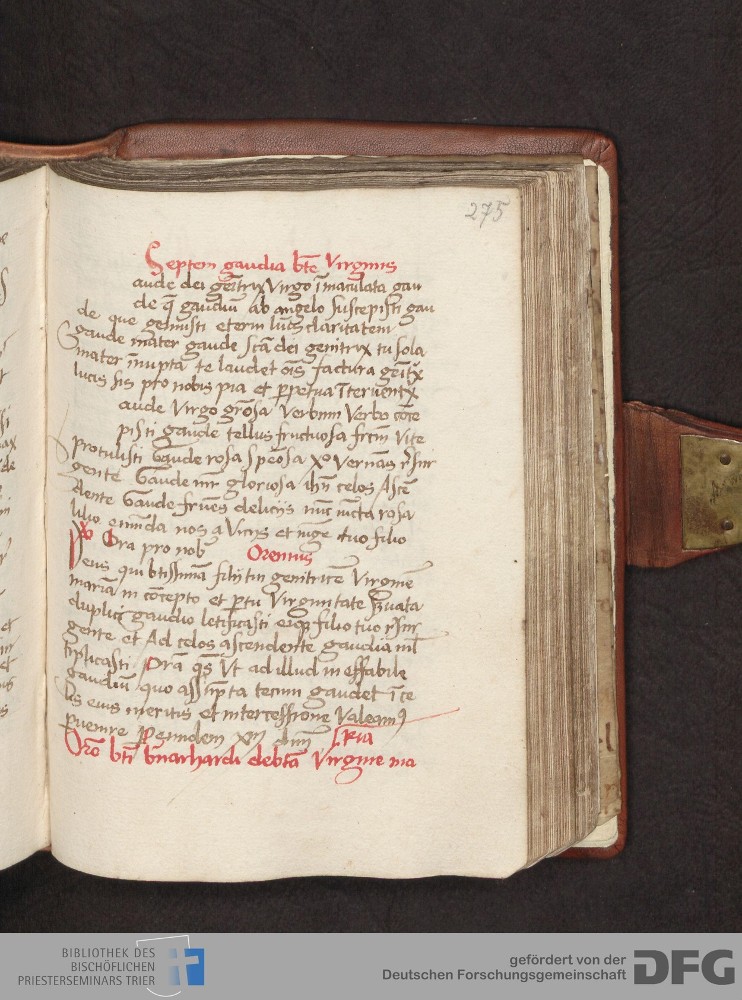 275
Septem gaudia bte Virginis
aude dei geitrix Virgo imaculata gau
de q gaudiu ab angelo suscepisti gau
de que genuisti eterni lucis claritatem
gaude mater gaude sca dei genitrix tu sola
mater inupta te laudet ois factura geitx
lucis sis pro nobis pia et perpetua iteruentx
aude Virgo grosa Verbum Verbo coce
pisti gaude tellus fructuosa frcm vite
protulisti Gaude rosa speosa xo Vernas rsur
gente Gaude mr gloriosa ihu celos Asce
dente Gaude frues deliciis nuc iucta rosa
lilio emuda nos a Viciis et iuge tuo filio
Ora pro nob Oremus
Deus qui btissima filij tui genitrice Virgine
maria in cocepto et partu Virginitate suata
duplici gaudio letificasti eiusq filio tuo rsur
gente et Ad celos ascendente gaudia ml
tiplicasti Pra qs Vt ad illud ineffabile
gaudiu quo assupta tecum gaudet i ce
lis eius meritis et intercessione Valeam9
puenire Per eundem xpm dnm
Oro bti bnarhardi de bta Virgine ma
ria
BIBLIOTHEK DES
BISCHÖFLICHEN
PRIESTERSEMINARS TRIER
gefördert von der
Deutschen Forschungsgemeinschaft
DFG